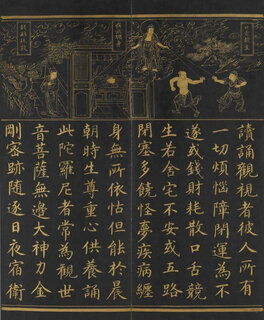 讀誦觀視者彼人所有
一切煩惱障閉運為不
遂或錢財耗散口舌競
生若舍宅不安或五路
閉塞多饒怪夢疾病纏
身無所依怙但能於晨
朝時生尊重心供養誦
此陀羅尼者常為觀世
音菩薩無邊大神力金
剛密跡隨逐日夜宿衛